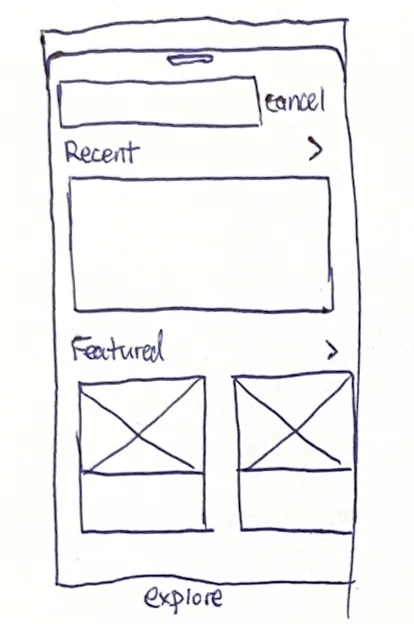 cancel
Recent >
Featured >
explore